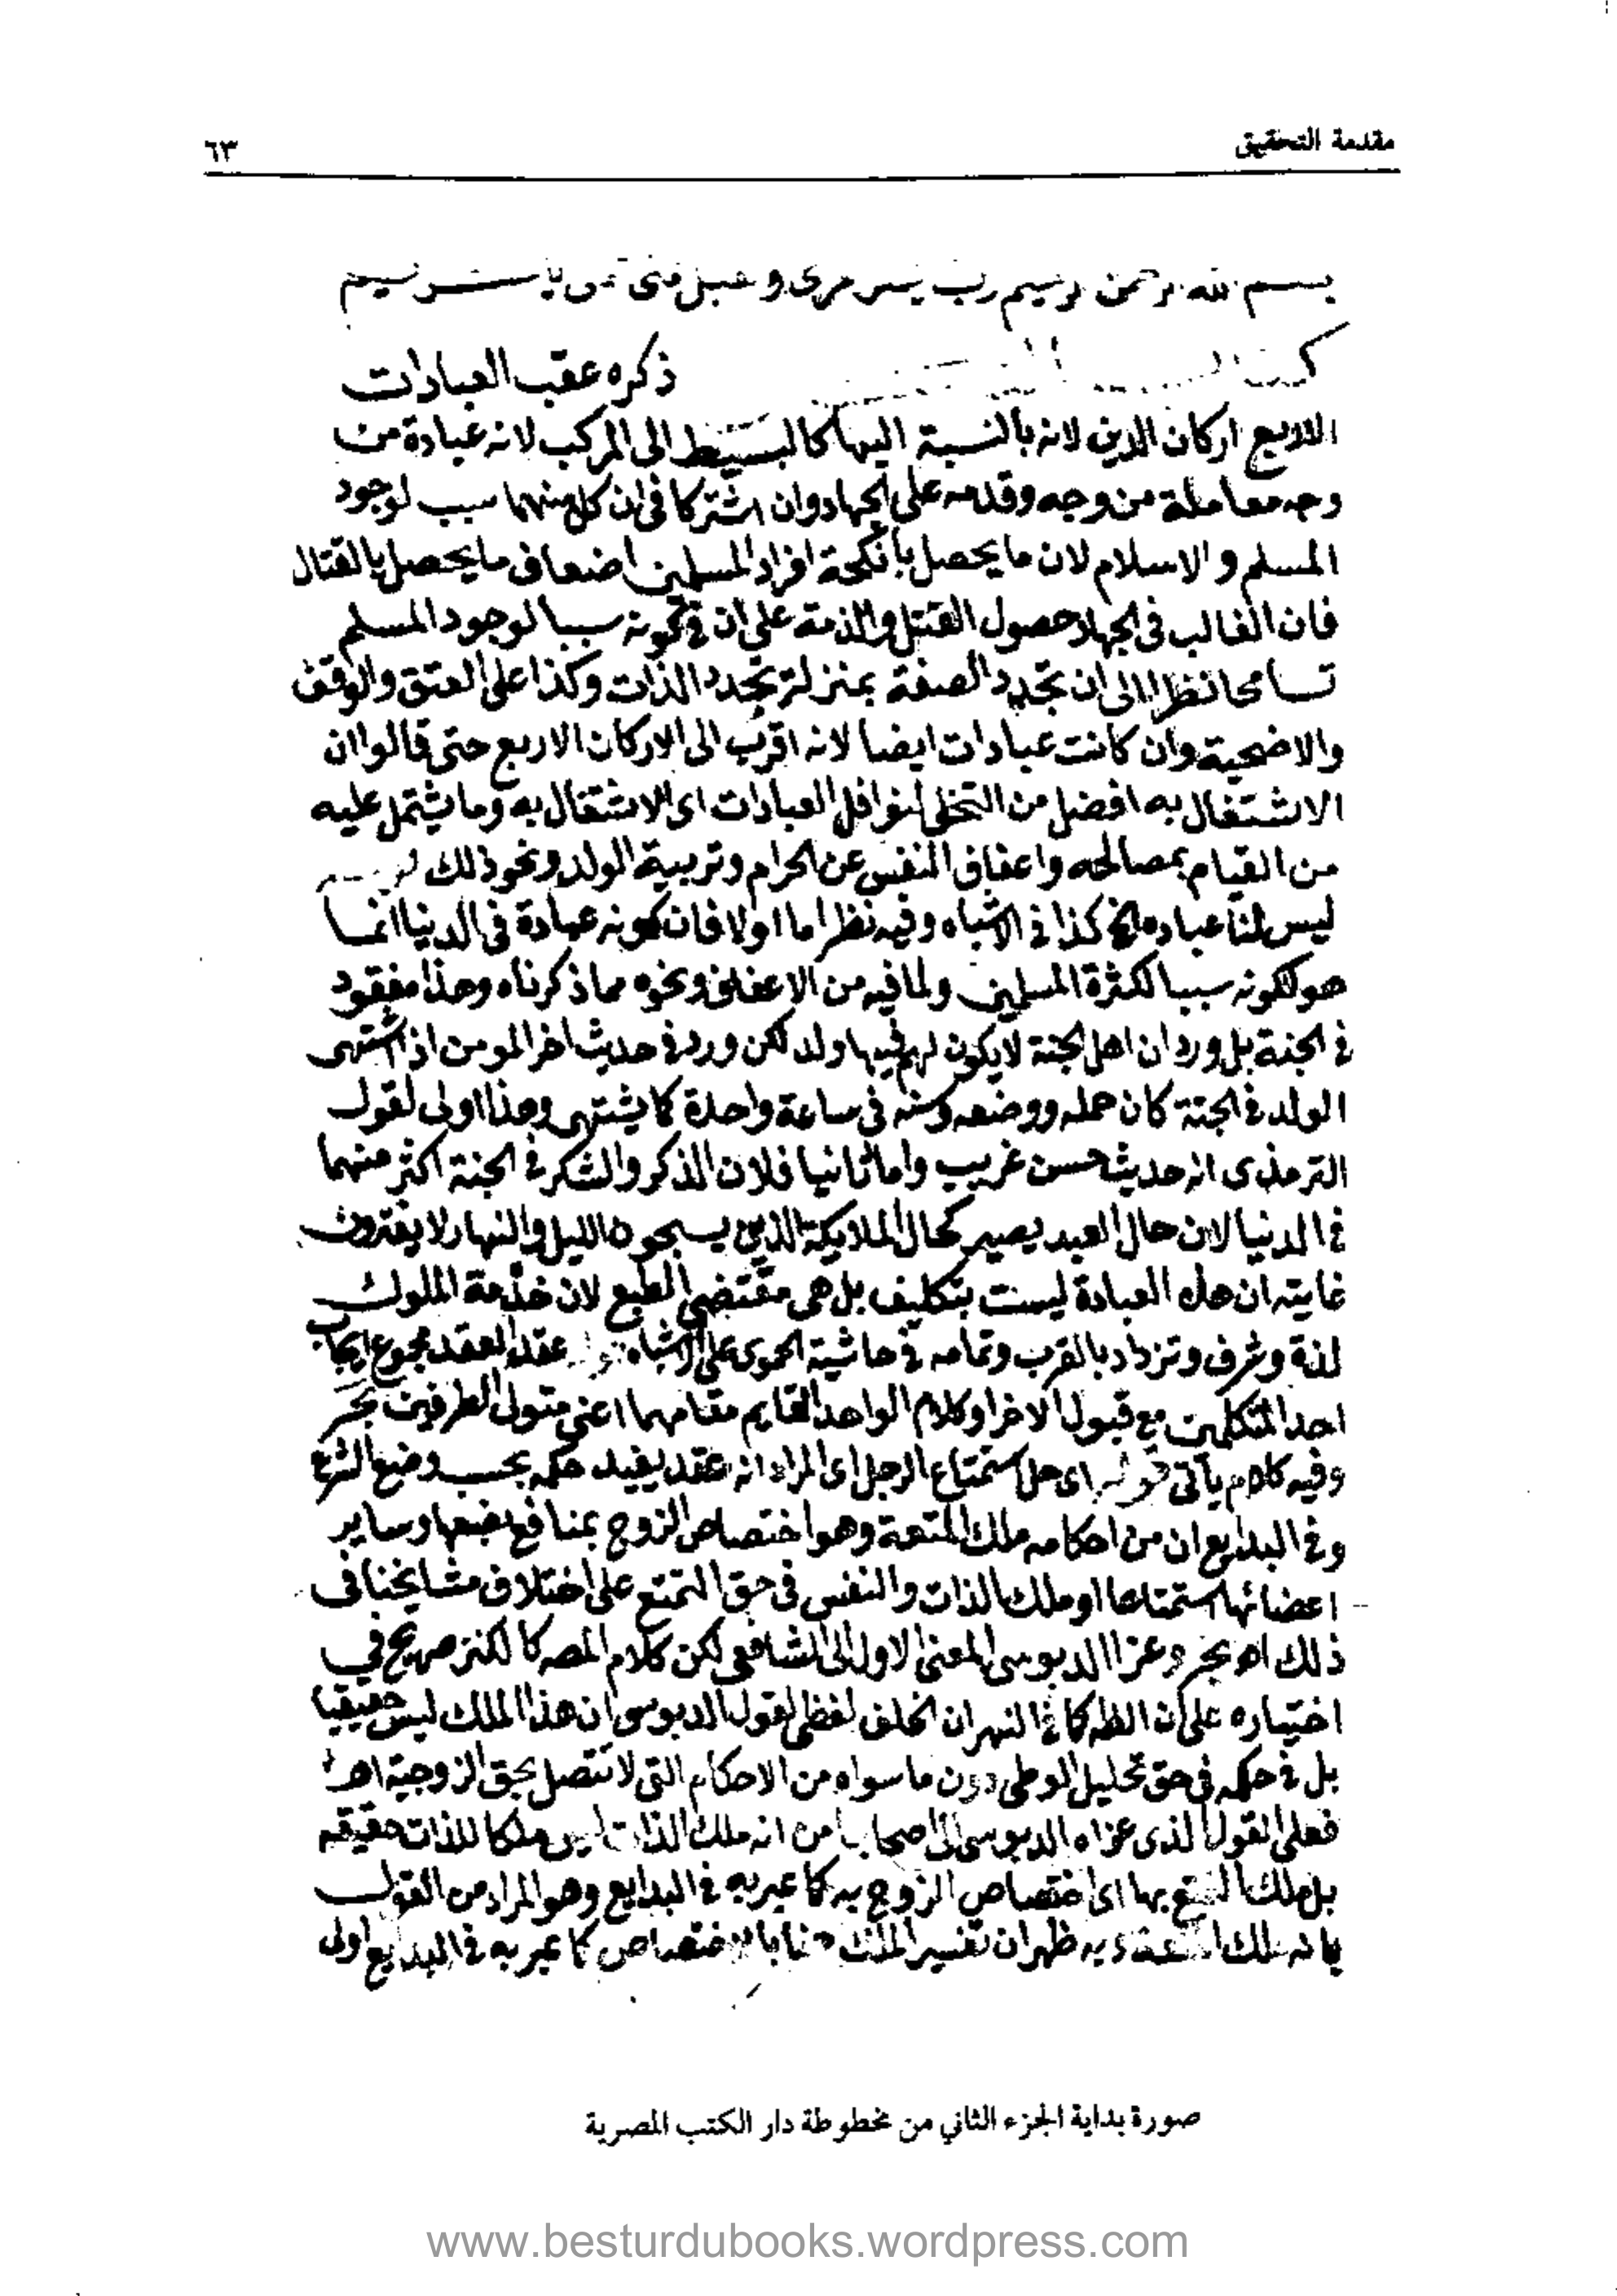 مقدمة التحقيق
٦٣
بسم الله الرحمن الرحيم رب يسر
ذكره عقب العبادات
الاربع اركان الدين لانه بالنسبة اليها كالبسيط الى المركب لانه عبادة من
وجه معاملة من وجه وقدمه على الجهاد وان اشتركا فى ان كل منهما سبب لوجود
المسلم والاسلام لان ما يحصل بانكحة افراد المسلمين اضعاف ما يحصل بالقتال
فان الغالب فى الجهاد حصول القتل والذمة على ان فى كونه سببا لوجود المسلم
تسامحا نظرا الى ان تجدد الصفة بمنزلة تجدد الذات وكذا على العتق والوقف
والاضحية وان كانت عبادات ايضا لانه اقرب الى الاركان الاربع حتى قالوا ان
الاشتغال به افضل من التخلى لنوافل العبادات اى الاشتغال به وما يشتمل عليه
من القيام بمصالحه واعفاف النفس عن الحرام وتربية الولد ونحو ذلك
ليس لنا عباده الخ كذا فى الاشباه وفيه نظر اما اولا فان كونه عبادة فى الدنيا انما
هو لكونه سببا لكثرة المسلمين ولما فيه من الاعفاف ونحوه مما ذكرناه وهذا مفقود
فى الجنة بل ورد ان اهل الجنة لا يكون لهم فيها ولد لكن ورد فى حديث اخر المومن اذا اشتهى
الولد فى الجنة كان حمله ووضعه وسنه فى ساعة واحدة كما يشتهى وهذا اولى لقول
الترمذى انه حديث حسن غريب واما ثانيا فلان الذكر والشكر فى الجنة اكثر منهما
فى الدنيا لان حال العبد يصير كحال الملايكة الذين يسبحون الليل والنهار لا يفترون
غايته ان هذه العبادة ليست بتكليف بل هى مقتضى الطبع لان خدمة الملوك
لذة وشرف وتزداد بالقرب وتمامه فى حاشية الحموى على الاشباه عقد العقد مجموع ايجاب
احد المتكلمين مع قبول الاخر او كلام الواحد القايم مقامهما اعنى متولى الطرفين بحر
وفيه كلام ياتى قوله اى حل استمتاع الرجل اى المراد انه عقد يفيد حكمه بحسب وضع الشرع
وفى البدايع ان من احكامه ملك المتعة وهو اختصاص الزوج بمنافع بضعها وساير
اعضائها استمتاعا او ملك الذات والنفس فى حق التمتع على اختلاف مشايخنا فى
ذلك اه بحر وعزا الدبوسى المعنى الاول الى الشافعى لكن كلام المصـ كالكنز صريح فى
اختياره على ان الظـ كما فى النهر ان الخلف لفظى لقول الدبوسى ان هذا الملك ليس حقيقيا
بل فى حكمه فى حق تحليل الوطى دون ما سواه من الاحكام التى لا تتصل بحق الزوجية اهـ
فعلى القول الذى عزاه الدبوسى الى اصحابنا من انه ملك الذات ليس ملكا للذات حقيقة
بل ملك التمتع بها اى اختصاص الزوج به كما عبر به فى البدايع وهو المراد من القول
بانه ملك المتعة وبه ظهر ان تفسير الملك هنا بالاختصاص كما عبر به فى البدايع اولى
صورة بداية الجزء الثاني من مخطوطة دار الكتب المصرية
www.besturdubooks.wordpress.com